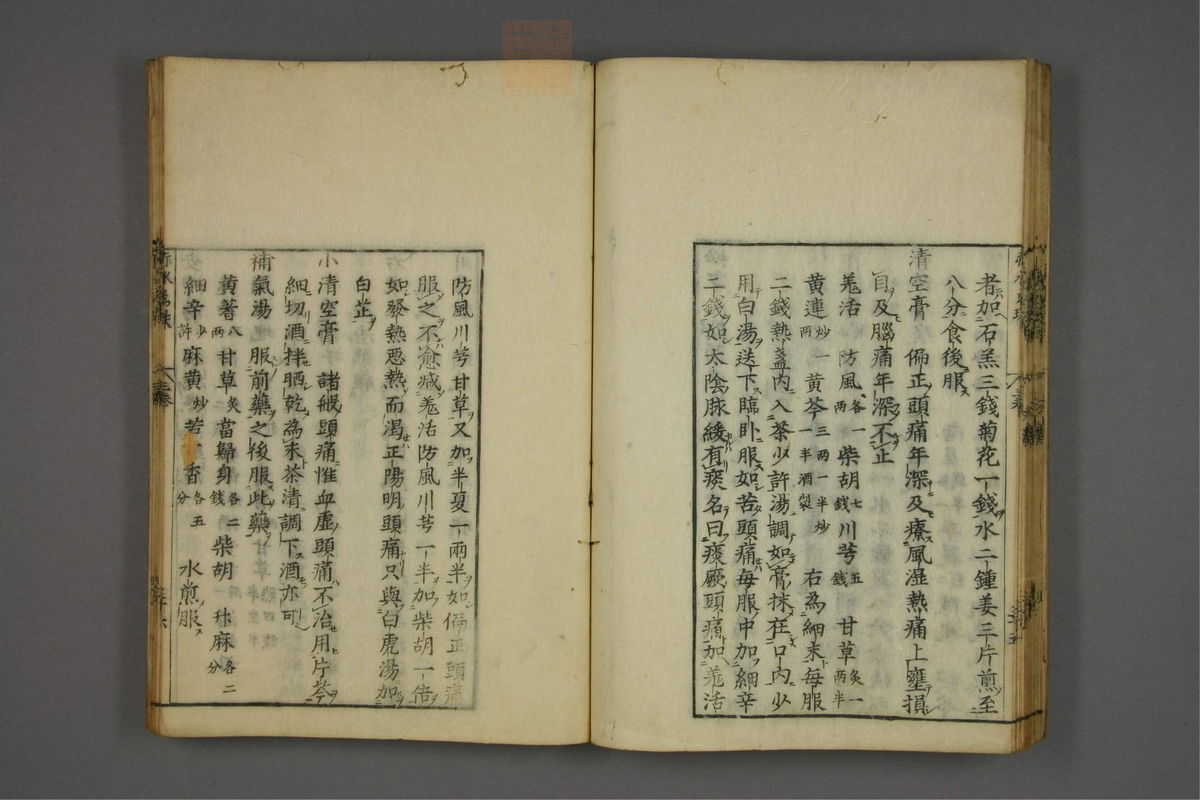 者加石羔三錢菊花一錢水二鍾姜三片煎至
八分食後服
清空膏 偏正頭痛年深及療風湿熱痛上壅損
目及腦痛年深不止
羗活 防風各一兩 柴胡七錢 川芎五錢 甘草炙一兩半
黄連炒一兩 黄芩三兩一半炒一半酒製 右為細末毎服
二錢熱盞内入茶少許湯調如膏抹在口内少
用白湯送下臨卧服如苦頭痛毎服中加細辛
二錢如太陰脉緩有痰名曰痰厥頭痛加羗活
防風川芎甘草又加半夏一兩半如偏正頭痛
服之不愈减羗活防風川芎一半加柴胡一倍
如發熱惡熱而渴正陽明頭痛只與白虎湯加
白芷
小清空膏 諸般頭痛惟血虚頭痛不治用片芩
細切酒拌晒乾為末茶清調下酒亦可
補氣湯 服前藥之後服此藥
黄著八兩 甘草炙 當歸身各二錢 柴胡一 升麻各二分
細辛少許 麻黄炒 苦 香各五分 水煎服